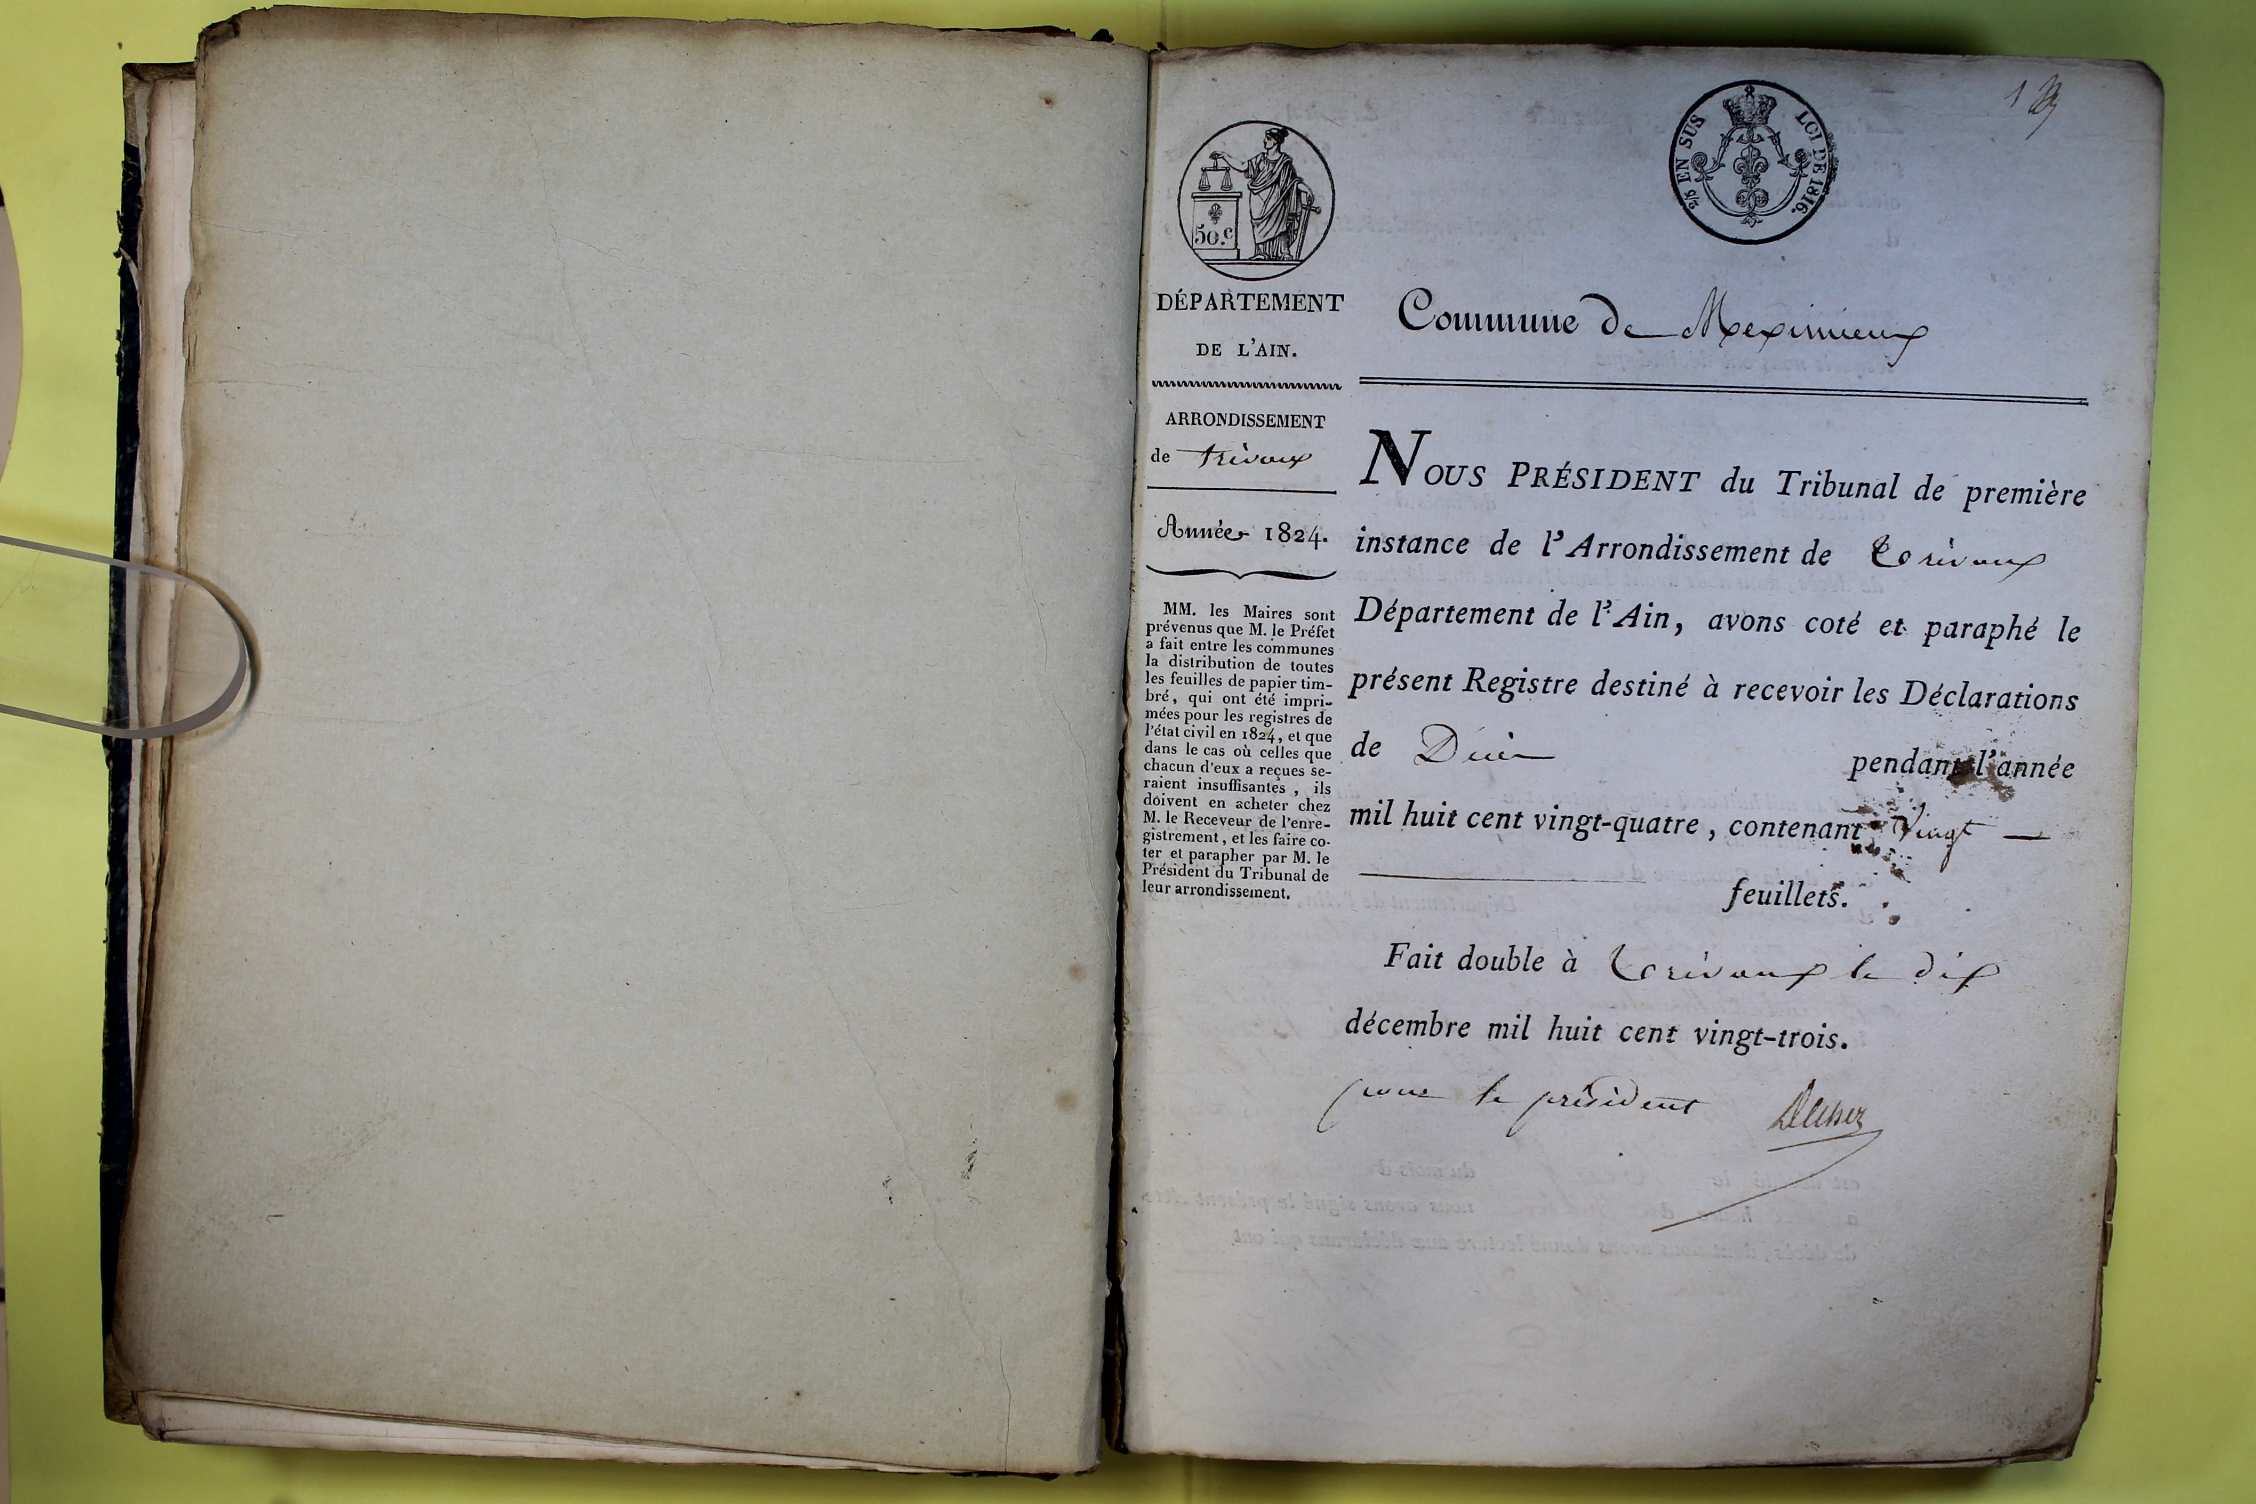 1
2/5 EN SUS
LOI DE 1816.
50.c
DÉPARTEMENT
DE L'AIN.
ARRONDISSEMENT
de trévoux
Année 1824.
MM. les Maires sont
prévenus que M. le Préfet
a fait entre les communes
la distribution de toutes
les feuilles de papier tim-
bré, qui ont été impri-
mées pour les registres de
l'état civil en 1824, et que
dans le cas où celles que
chacun d'eux a reçues se-
raient insuffisantes, ils
doivent en acheter chez
M. le Receveur de l'enre-
gistrement, et les faire co-
ter et parapher par M. le
Président du Tribunal de
leur arrondissement.
Commune de Meximieux
NOUS PRÉSIDENT du Tribunal de première
instance de l'Arrondissement de Trévoux
Département de l'Ain, avons coté et paraphé le
présent Registre destiné à recevoir les Déclarations
de Décès pendant l'année
mil huit cent vingt-quatre, contenant vingt
feuillets.
Fait double à Trévoux le dix
décembre mil huit cent vingt-trois.
pour le président